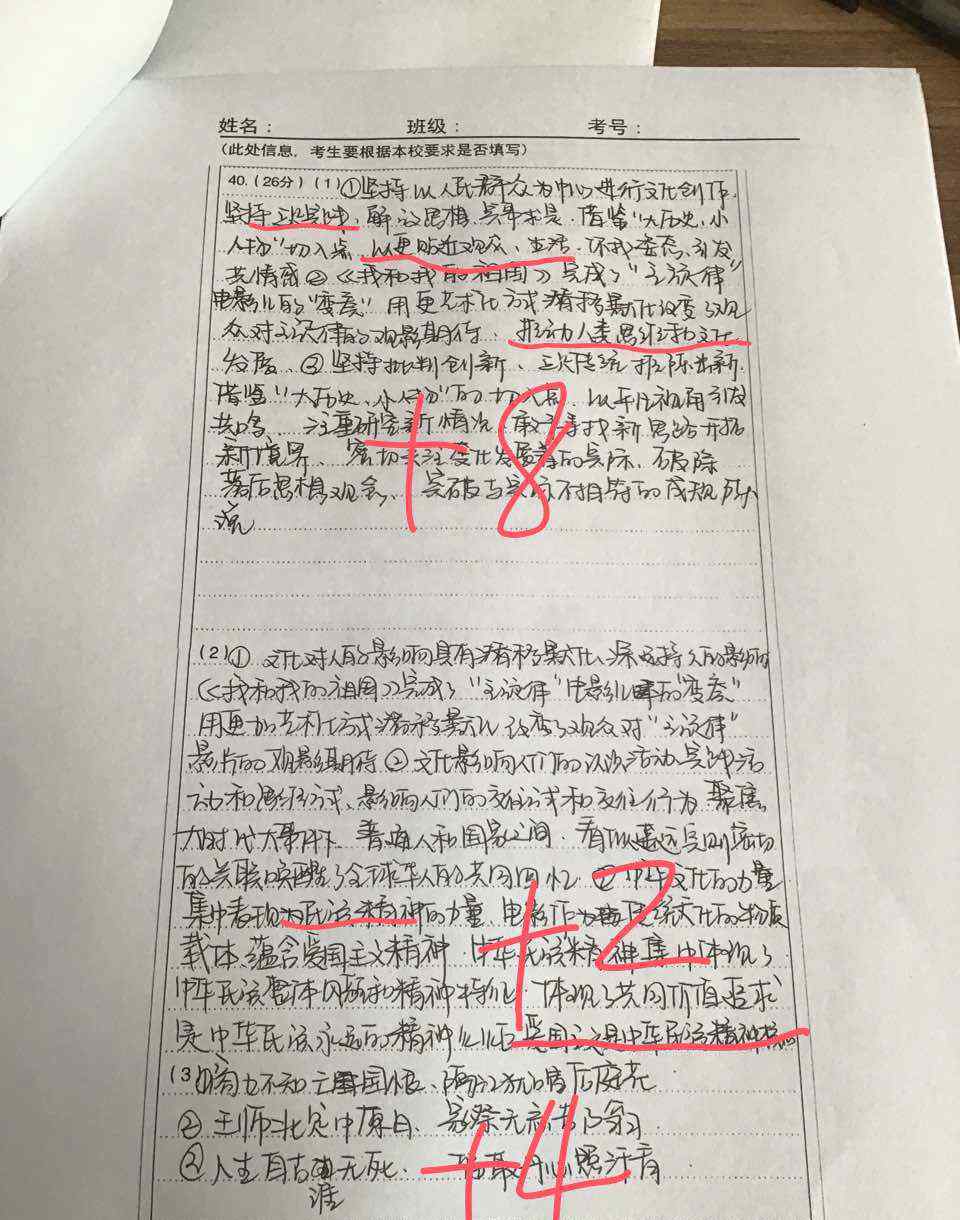 姓名： 班级： 考号：
(此处信息，考生要根据本校要求是否填写)
40.(26分)(1)①坚持以人民群众为中心进行文化创作，
坚持立足实践，解放思想、实事求是，借鉴"大历史、小
人物"切入点，以更贴近观众、生活 引发
共情感②《我和我的祖国》完成了"主旋律"
电影的"变奏"用更艺术化方式潜移默化改变了观
众对主旋律的观影期待、推动人类思维和文化
发展。③坚持批判创新、立火传统推陈出新，
借鉴"大历史、小人物"的切入点，以平凡视角引发
共鸣 注重研究新情况 敢于寻找新思路开拓
新境界、密切关注变化发展着的实际、破除
落后思想观念、 突破与实际不相符的成规陈
(2)①文化对人的影响具有潜移默化、深远持久的影响
《我和我的祖国》完成了"主旋律"电影的"变奏"
用更加艺术化方式潜移默化改变了观众对"主旋律"
影片的观影期待②文化影响人们的认识活动、实践活
动和思维方式、影响人们的交往方式和交往行为 聚焦
大时代大事件下 普通人和国家之间，看似遥远实则密切
的关联唤醒了全球华人的共同回忆 中华文化的力量
集中表现为民族精神的力量 电影作为 传统文化的物质
载体、蕴含爱国主义精神 中华民族精神集中体现了
中华民族整体风貌和精神特征 体现了共同价值追求
是中华民族永远的精神 爱国主义是中华民族精神核心
(3)①商女不知亡国恨、隔江犹唱后庭花
②王师北定中原日、家祭无忘告乃翁
③人生自古谁无死、 留取丹心照汗青
+8
+2
+4